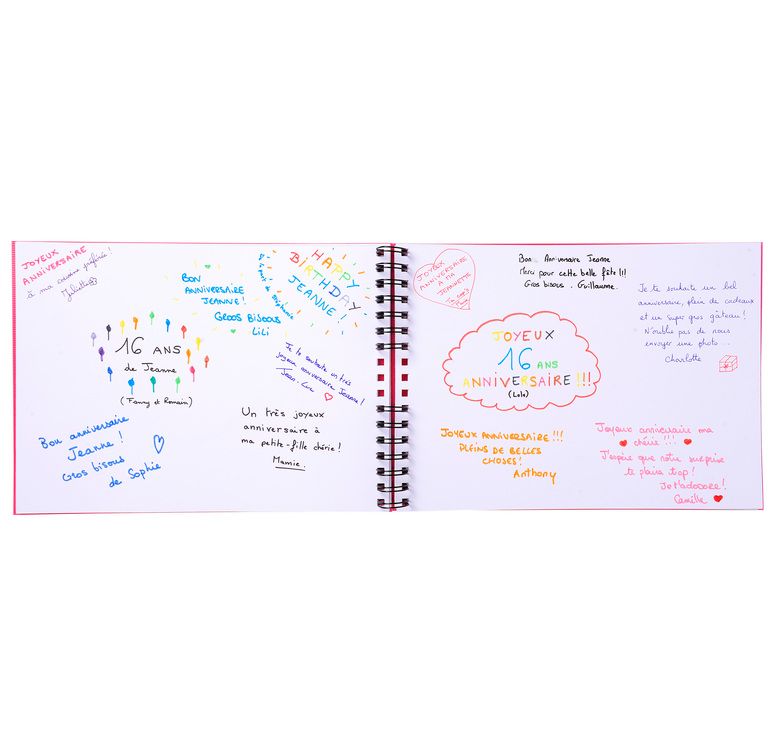 JOYEUX
ANNIVERSAIRE
à ma cousine préférée !
Juliette
BON
ANNIVERSAIRE
JEANNE !
GROOS BISOUS
LILI
HAPPY
BIRTHDAY
JEANNE !
de la part de Stéphanie
16 ANS
de Jeanne
(Fanny et Romain)
Je te souhaite un très
joyeux anniversaire Jeanne !
Jean-Luc
Bon anniversaire
Jeanne !
Gros bisous
de Sophie
Un très joyeux
anniversaire à
ma petite-fille chérie !
Mamie.
JOYEUX
ANNIVERSAIRE
A MA
JEANNETTE
Bon Anniversaire Jeanne
Merci pour cette belle fête !!!
Gros bisous. Guillaume.
Je te souhaite un bel
anniversaire, plein de cadeaux
et un super gros gâteau !
N'oublie pas de nous
envoyer une photo...
Charlotte
JOYEUX
16 ANS
ANNIVERSAIRE !!!
(Lola)
JOYEUX ANNIVERSAIRE !!!
PLEINS DE BELLES
CHOSES !
Anthony
Joyeux anniversaire ma
chérie !!!
J'espère que notre surprise
te plaira trop !
Je t'adooore !
Camille